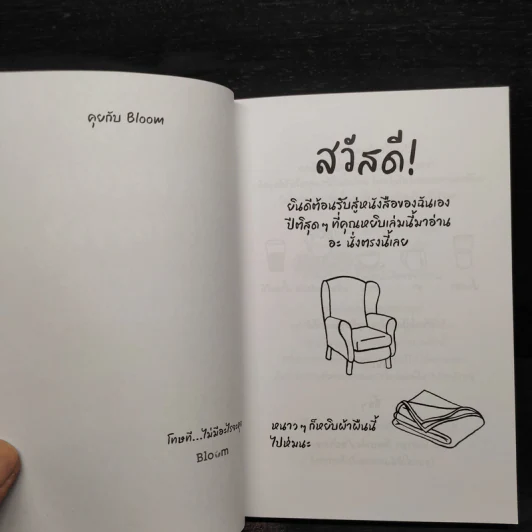 คุยกับ Bloom
โทษที...ไม่มีอะไรจะคุย
Bloom
สวัสดี!
ยินดีต้อนรับสู่หนังสือของฉันเอง
ปีติสุด ๆ ที่คุณหยิบเล่มนี้มาอ่าน
อะ นั่งตรงนี้เลย
หนาว ๆ ก็หยิบผ้าผืนนี้
ไปห่มนะ